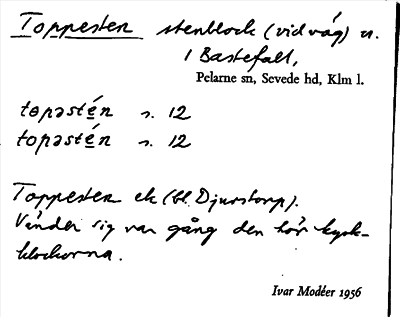 Toppesten stenblock (vid väg) n.
i Bastefall,
Pelarne sn, Sevede hd, Klm l.
təpəstén s. 12
topəstén s. 12
Toppesten ek (bl. Djurstorp).
Vänder sig var gång den hör kyrk-
klockorna.
Ivar Modéer 1956